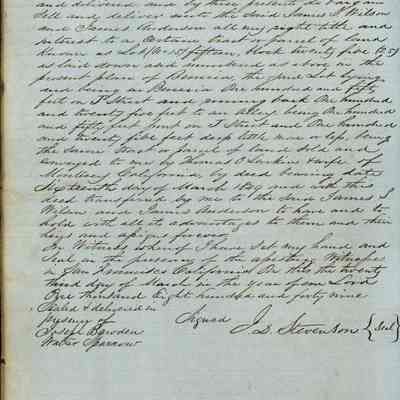 and delivered and by these presents do bargain
sell and deliver unto the said James S Wilson
and James Anderson all my right title and
interest to a certain tract or parcel of land
known as Lot No 15/fifteen, block twenty five (25)
as laid down and numbered as above in the
present plan of Benicia, the said Lot lying
and being in Benicia One hundred and fifty
feet on I Street and running back One hundred
and twenty five feet to an alley being One hundred
and fifty feet front on I Street and One hundred
and twenty five feet deep little more or less, being
the same tract or parcel of land sold and
conveyed to me by Thomas O Larkin & wife of
Monterey California, by deed bearing date
Sixteenth day of March 1849 and with this
deed transferred by me to the said James S
Wilson and James Anderson to have and to
hold with all its advantages to them and their
heirs and assigns forever
In Witness whereof I have set my hand and
Seal in the presence of the witnesses
in San Francisco California On this the twenty
third day of March in the year of our Lord
One thousand Eight hundred and forty nine
Sealed & delivered in
presence of
Signed J. D. Stevenson {Seal}
Bowden
Walter Sparrow